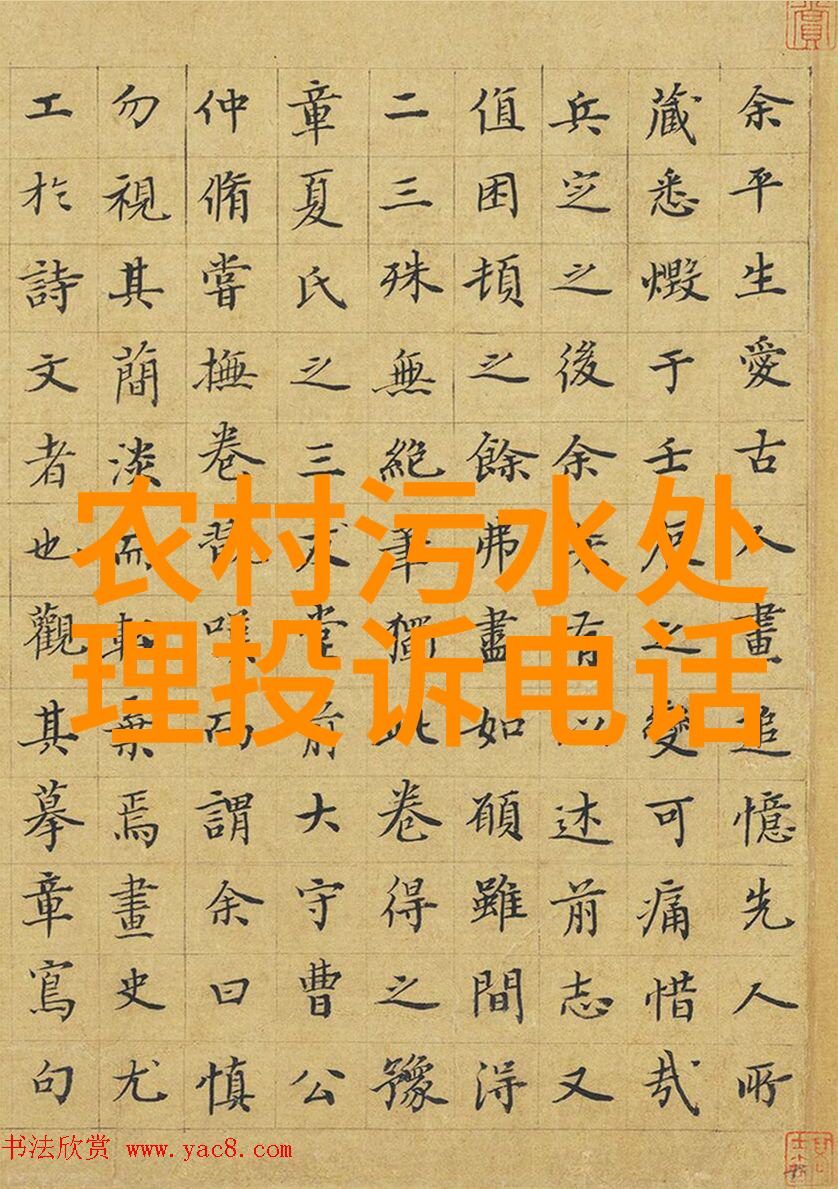 农村污水处
理投诉电话
余平生愛古人畫追憶先人所
藏悉燬于壬辰之變可痛惜哉
兵定之後余有以述前志又
值困頓之餘弗盡如願雖間得
二三殊無絕筆獨此卷得之豫
章夏氏之三友堂前大守曹公
仲脩嘗撫卷嘆而謂余曰慎
勿視其簡淡而輒棄焉畫史尤
工於詩文者也觀其摹章寫句
书法欣赏 www.yac8.com